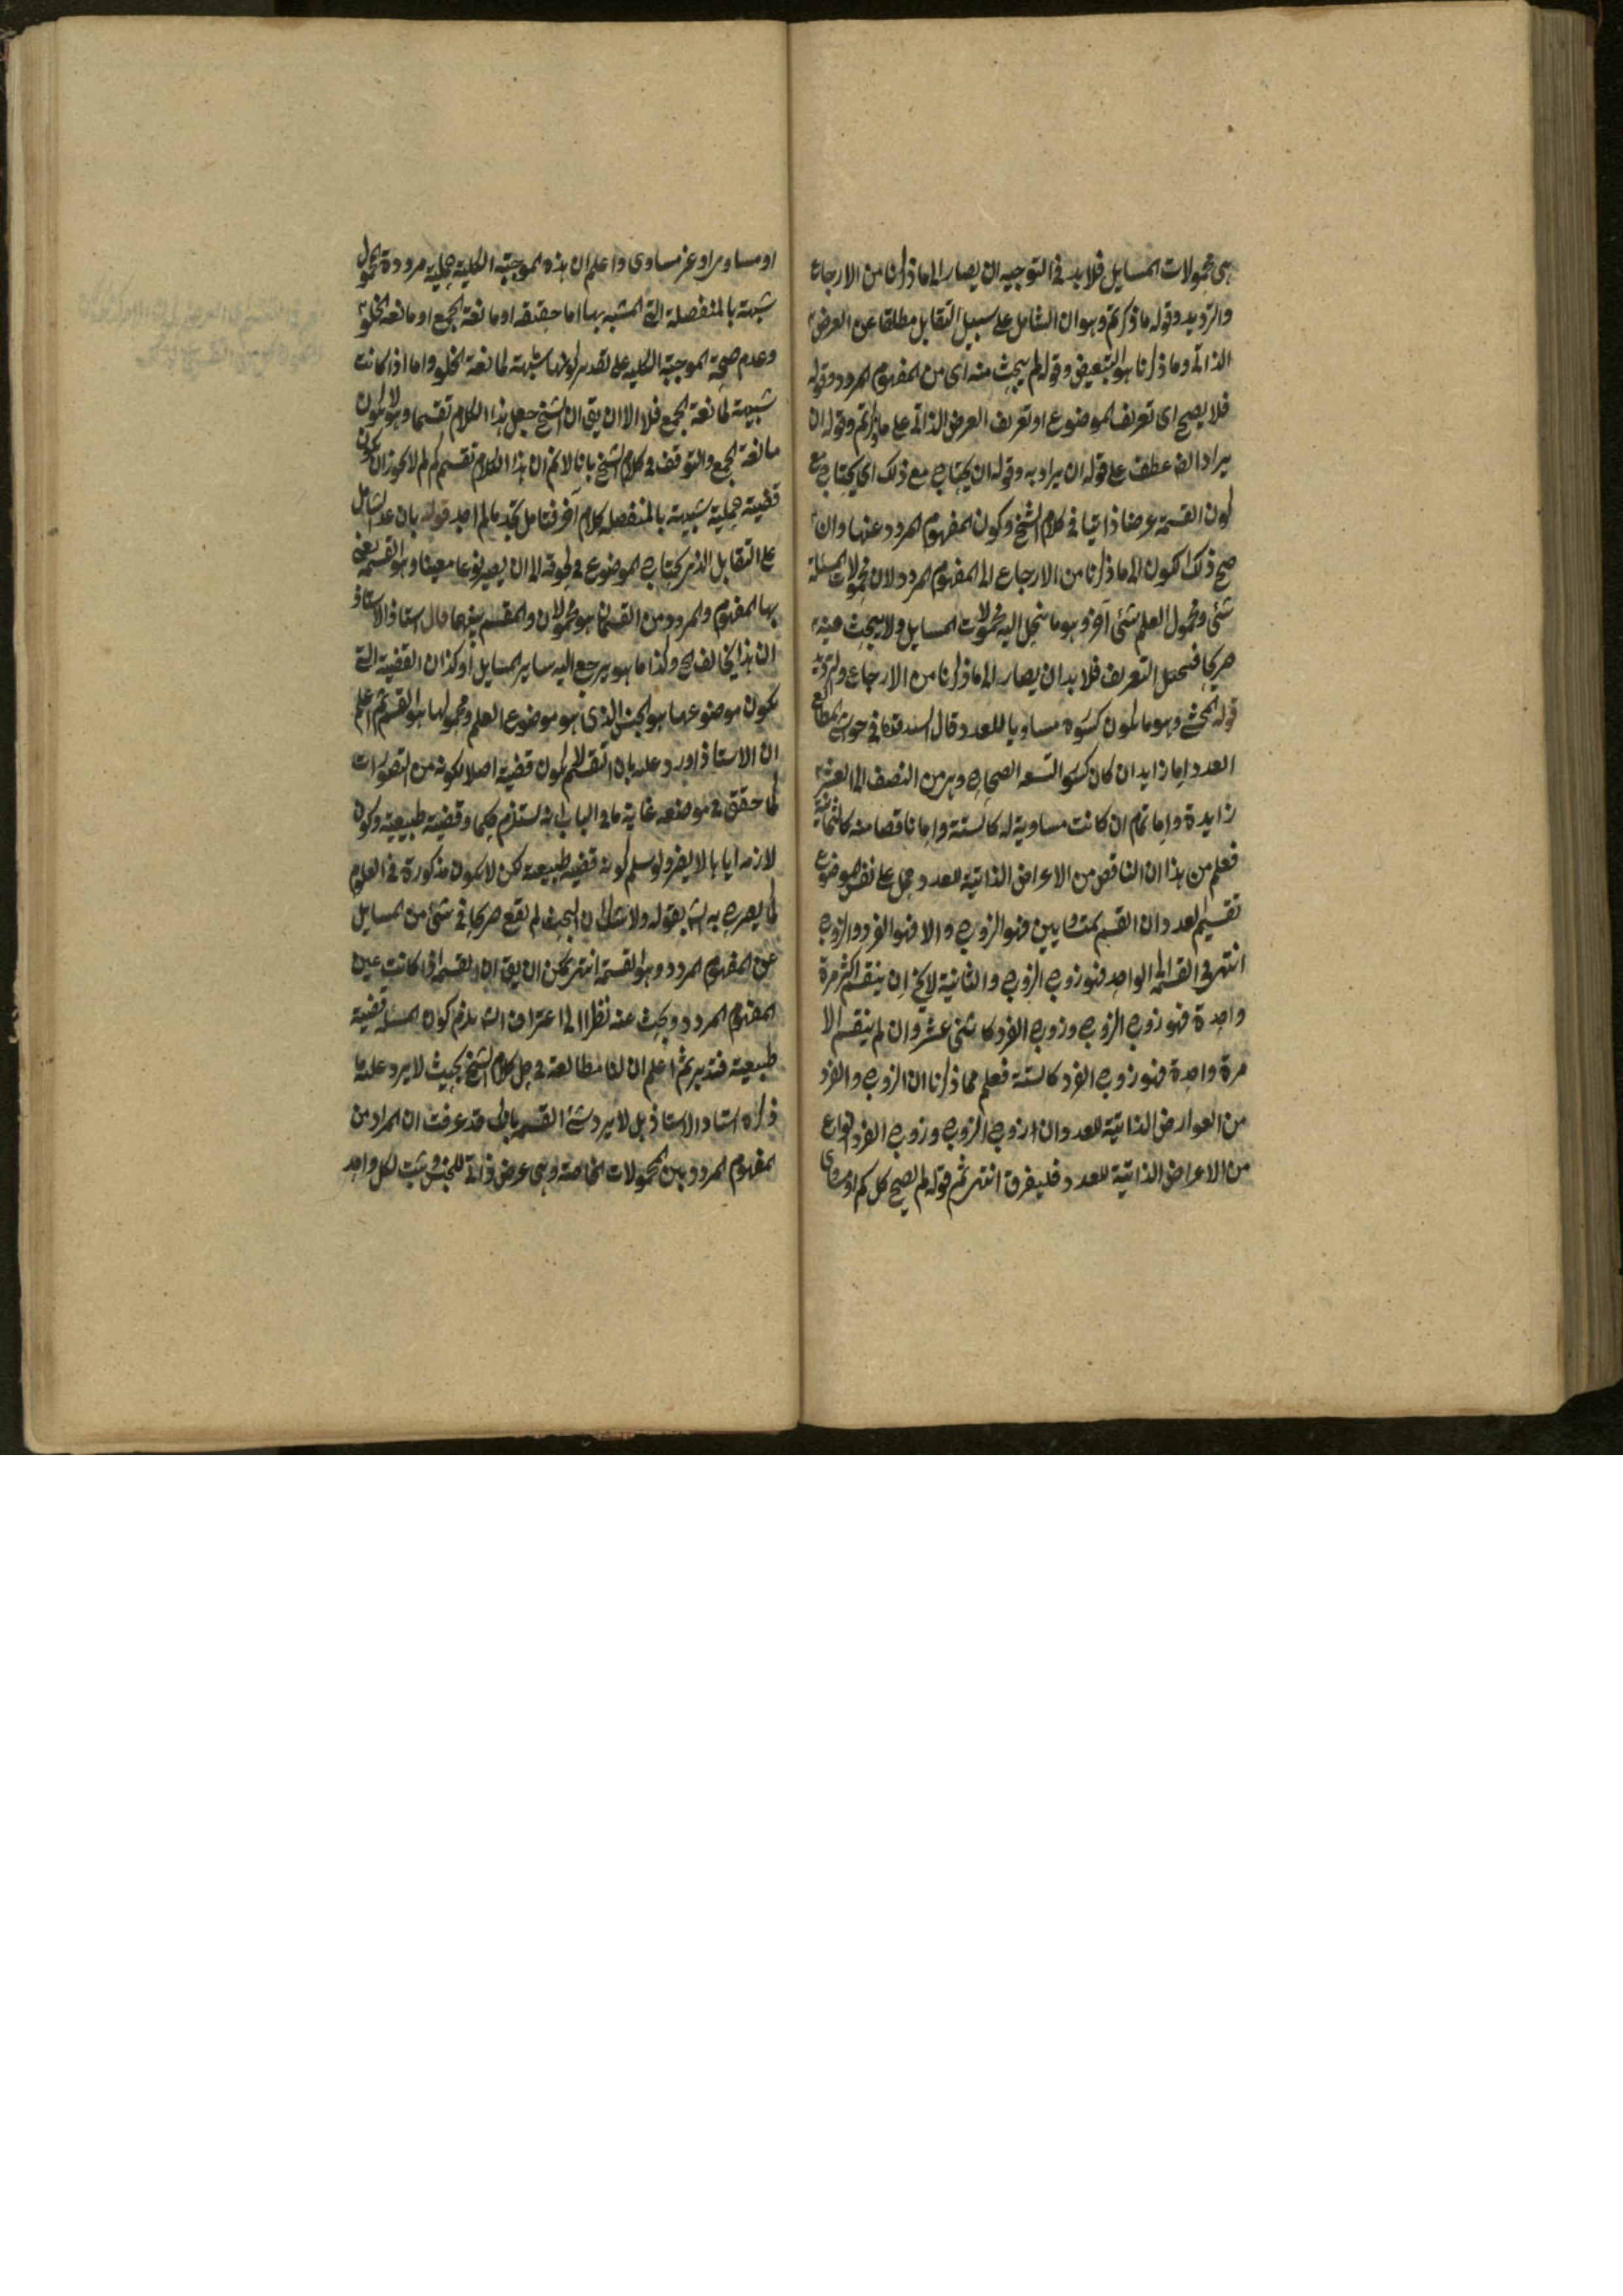 هى محمولات المسايل فلا بد فى التوجيه ان يصار الى ما ذكرنا من الارجاع
والترديد وقوله ما ذكرتم وهو ان الشامل على سبيل التقابل مطلقا عن العرض
الذاتى وما ذكرنا هو التبعيض وقوله لم يبحث منه اى من المفهوم المردد وقوله
فلا يصح اى تعريف الموضوع او تعريف العرض الذاتى على ما ذكرتم وقوله ان
يراد ايضا عطف على قوله ان يراد به وقوله ان يحتاج مع ذلك اى يحتاج مع
كون القسمة عرضا ذاتيا فى كلام الشيخ وكون المفهوم المردد عنها وان
صح ذلك الكون الى ما ذكرنا من الارجاع الى المفهوم المردد لان محمولات المسئلة
شئى ومحمول العلم شئى آخر وهو ما ينحل اليه محمولات المسايل ولا يبحث عنه
صريحا فيختل التعريف فلا بد ان يصار الى ما ذكرنا من الارجاع والترديد
قوله المحشى وهو ما يكون كسوره مساويا للعدد وقال السيد قده فى حواشى المطالع
العدد اما زايد ان كان كسوره التسعه الصحاح وهى من النصف الى العشر
زايدة واما تمام ان كانت مساوية له كالستة واما ناقصا منه كالثمانية
فعلم من هذا ان الناقص من الاعراض الذاتية للعدد وحمل على نفس الموضوع
تقسيم العدد ان انقسم بمتساويين فهو الزوج والا فهو الفرد والزوج
انتهى فى القسمة الى الواحد فهو زوج الزوج والثانية لا يخ ان ينقسم اكثر مرة
واحدة فهو زوج الزوج وزوج الفرد كاثنى عشر وان لم ينقسم الا
مرة واحدة فهو زوج الفرد كالستة فعلم مما ذكرنا ان الزوج والفرد
من العوارض الذاتية للعدد وان زوج الزوج وزوج الفرد انواع
من الاعراض الذاتية للعدد فليفرق انتهى ثم قوله لم يصح كل كم او مساوى
او مساو مراو غير مساوى واعلم ان هذه الموجبة الكلية حملية مرددة المحمول
شبهة بالمنفصلة التى المشبه بها اما حقيقه او مانعة الجمع او مانعه الخلو
وعدم صحة الموجبة الكليه على تقدير كونها شبيهة لمانعة الخلو واما اذا كانت
شبيهة لمانعة الجمع فلا الا ان يقى ان الشيخ جعل هذا الكلام تقسيما وهو لا يكون
مانعة الجمع والتوقف فى كلام الشيخ بانا لا نم ان هذا الكلام تقسيم كم لم لا يجوز ان يكون
قضية حملية شبيهة بالمنفصله كلام آخر فتامل تجد ما لم اجد قوله بان عد الشامل
على التقابل الذى يحتاج الموضوع فى لحوقه الى ان يصير نوعا معينا وهو القسمة يعنى
بها المفهوم والمردد من القسمان هو محمولان والمقسم بينهما قال استاذ الاستاذ
ان هذا يخالف لح وكذا ما هو يرجع اليه ساير المسايل او كذا ان القضية التى
يكون موضوعها هو الجنس الذى هو موضوع العلم ومحمولها هو القسم ثم اعلم
ان الاستاذ اورد عليه بان التقسيم لا يكون قضية اصلا لكونه من التصورات
كما حقق فى موضعه غاية ما فى الباب انه يستلزم حكما وقضية طبيعية وكون
لازمه اياها لا يضر ولو سلم كونه قضية طبيعة لكن لا يكون مذكورة فى العلوم
كما يصرح به الش بقوله ولا شك ان البحث لم يقع صريحا فى شئ من المسايل
عن المفهوم المردد وهو القسمة انتهى يمكن ان يق ان القسمة اذا كانت عين
المفهوم المردد ويبحث عنه نظرا الى اعتراف الش يلزم كون المسئلة قضية
طبيعية فتدبر ثم اعلم ان لنا مطالعة فى حل كلام الشيخ بحيث لا يرد عليه ما
ذكره استاد الاستاذ بل لا يرد شئ القسم بانك قد عرفت ان المراد من
المفهوم المردد بين المحمولات الخاصة وهى عرض ذاتى للجنس يثبت لكل واحد